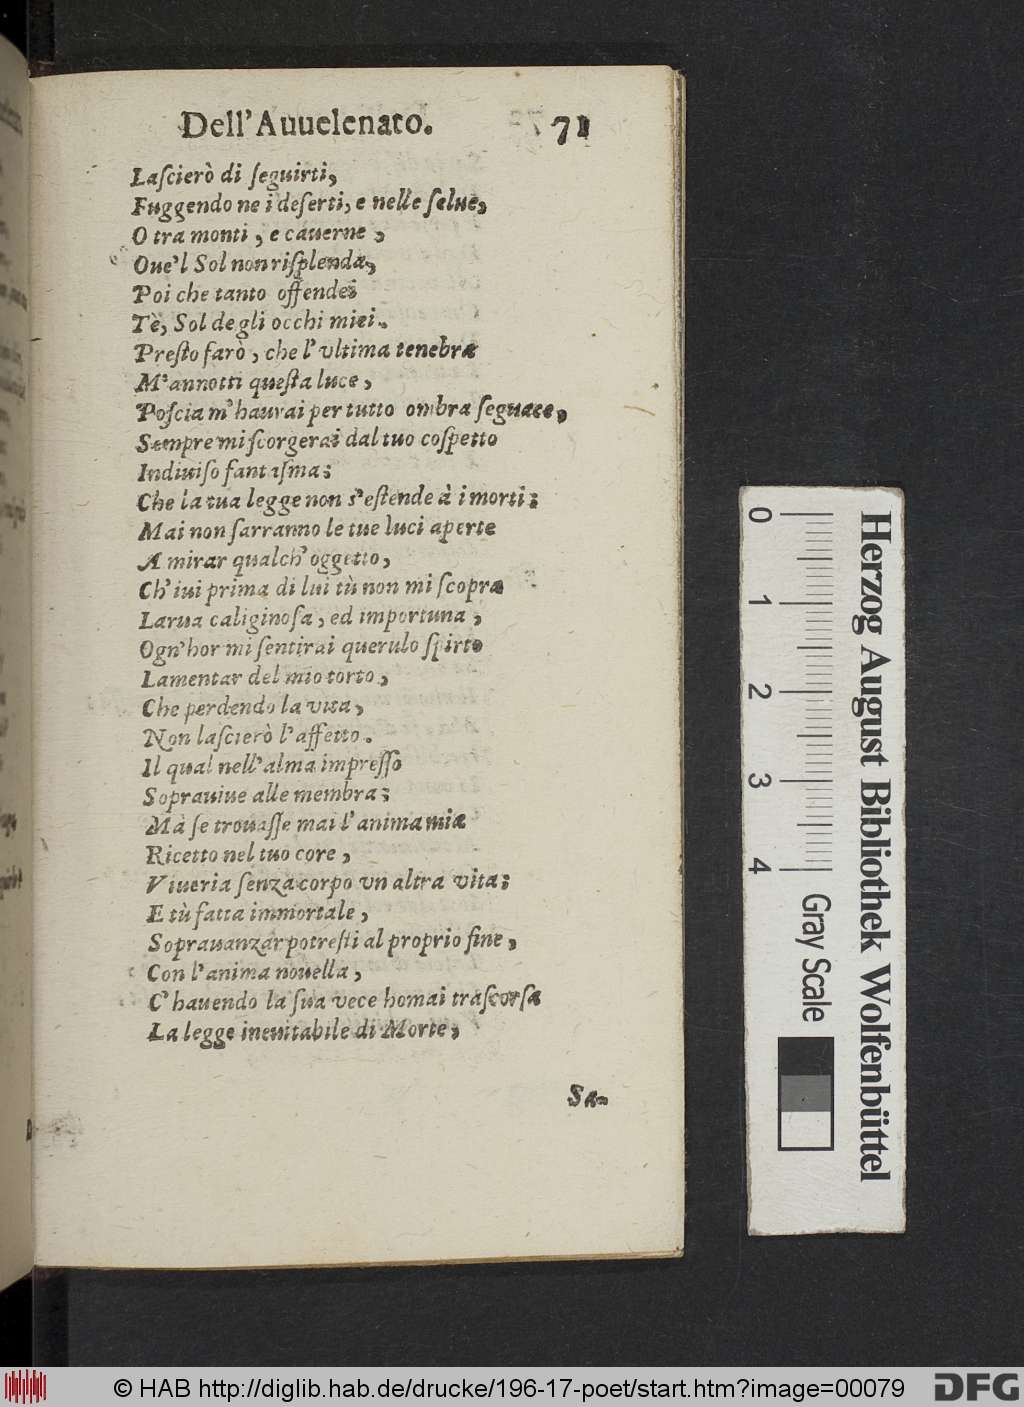 Dell'Auuelenato. 71
Laſcierò di ſeguirti,
Fuggendo ne i deſerti, e nelle ſelue,
O tra monti, e cauerne,
Oue'l Sol non riſplenda,
Poi che tanto offendei
Tè, Sol degli occhi miei.
Preſto farò, che l'vltima tenebra
M'annotti queſta luce,
Poſcia m'haurai per tutto ombra ſeguace,
Sempre mi ſcorgerai dal tuo coſpetto
Indiuiſo fantaſma;
Che la tua legge non s'eſtende à i morti;
Mai non ſarranno le tue luci aperte
A mirar qualch'oggetto,
Ch'iui prima di lui tù non mi ſcopra
Larua caliginoſa, ed importuna,
Ogn'hor mi ſentirai querulo ſpirto
Lamentar del mio torto,
Che perdendo la vita,
Non laſcierò l'affetto.
Il qual nell'alma impreſſo
Soprauiue alle membra;
Mà ſe trouaſſe mai l'anima mia
Ricetto nel tuo core,
Viueria ſenza corpo vn altra vita;
E tù fatta immortale,
Soprauanzar potreſti al proprio fine,
Con l'anima nouella,
C'hauendo la ſua vece homai traſcorſa
La legge ineuitabile di Morte,
Sa-
0 1 2 3 4
Gray Scale
Herzog August Bibliothek Wolfenbüttel
© HAB http://diglib.hab.de/drucke/196-17-poet/start.htm?image=00079
DFG